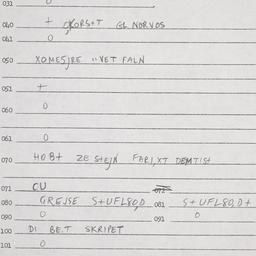 031
040 +
041 0
050 XOMESJRE "VET FALN
051 +
060 0
061 0
070 HO8t ZE StEJN FABIXT DEMTISt
071 CU
080 GREJSE S+UFL80,D 081 S+UFL80,D+
090 0 091 0
100 DI BE.T SKRIPET
101 0